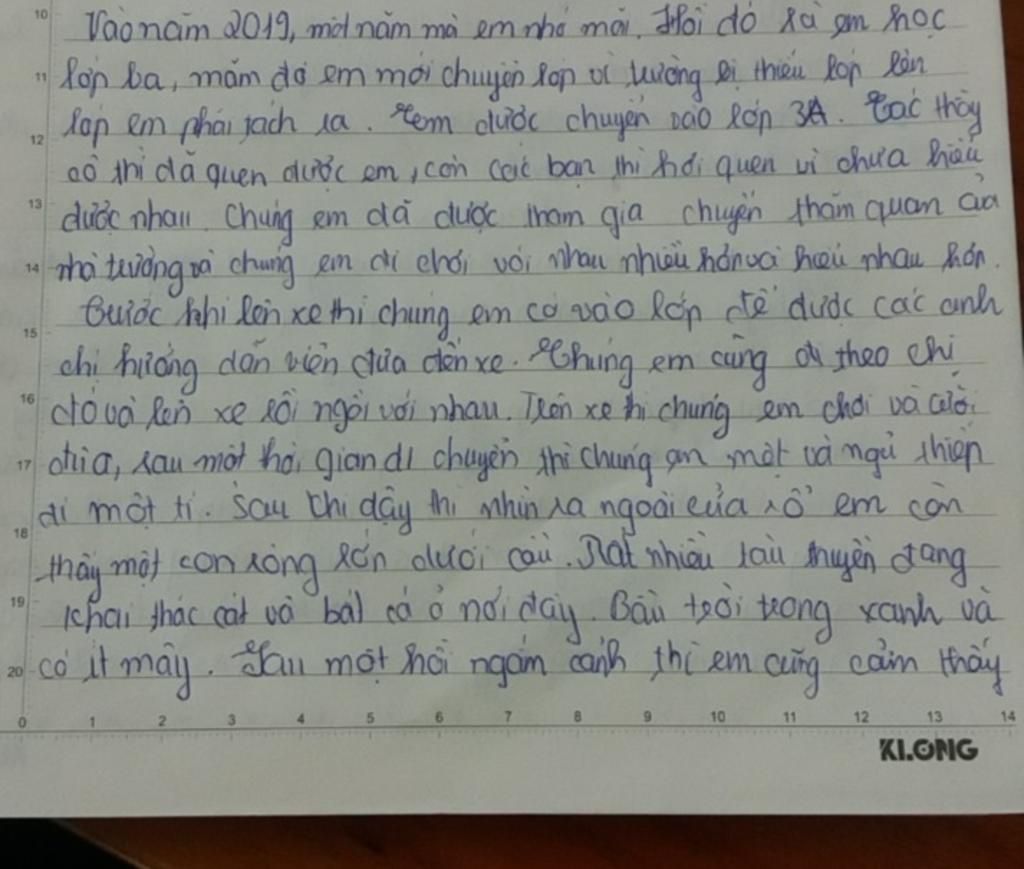 Vào năm 2019, một năm mà em nhớ mãi. Hồi đó là em học
lớp ba, năm đó em mới chuyển lớp vì trường bị thiếu lớp lên
lớp em phải tách ra. Em được chuyển vào lớp 3A. Các thầy
cô thì đã quen được em, còn các bạn thì hơi quen vì chưa hiểu
được nhau. Chúng em đã được tham gia chuyến thăm quan của
nhà trường và chúng em đi chơi với nhau nhiều hơn và hiểu nhau hơn.
Trước khi lên xe thì chúng em có vào lớp để được các anh
chị hướng dẫn viên đưa đến xe. Chúng em cũng đi theo chị
đó và lên xe rồi ngồi với nhau. Trên xe thì chúng em chơi và cười
đùa, sau một hồi gian di chuyển thì chúng em mệt và ngủ thiếp
đi một tí. Sau khi dậy thì nhìn ra ngoài cửa sổ em còn
thấy một con sông lớn dưới cầu. Rất nhiều tàu thuyền đang
khai thác cát và bắt cá ở nơi đây. Bầu trời trong xanh và
có ít mây. Sau một hồi ngắm cảnh thì em cũng cảm thấy
10
11
12
13
14
15
16
17
18
19
20
0 1 2 3 4 5 6 7 8 9 10 11 12 13 14
KLONG